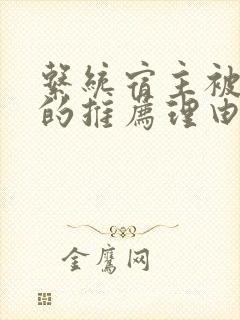 繫統宿主被
的推薦理由
金鷹网